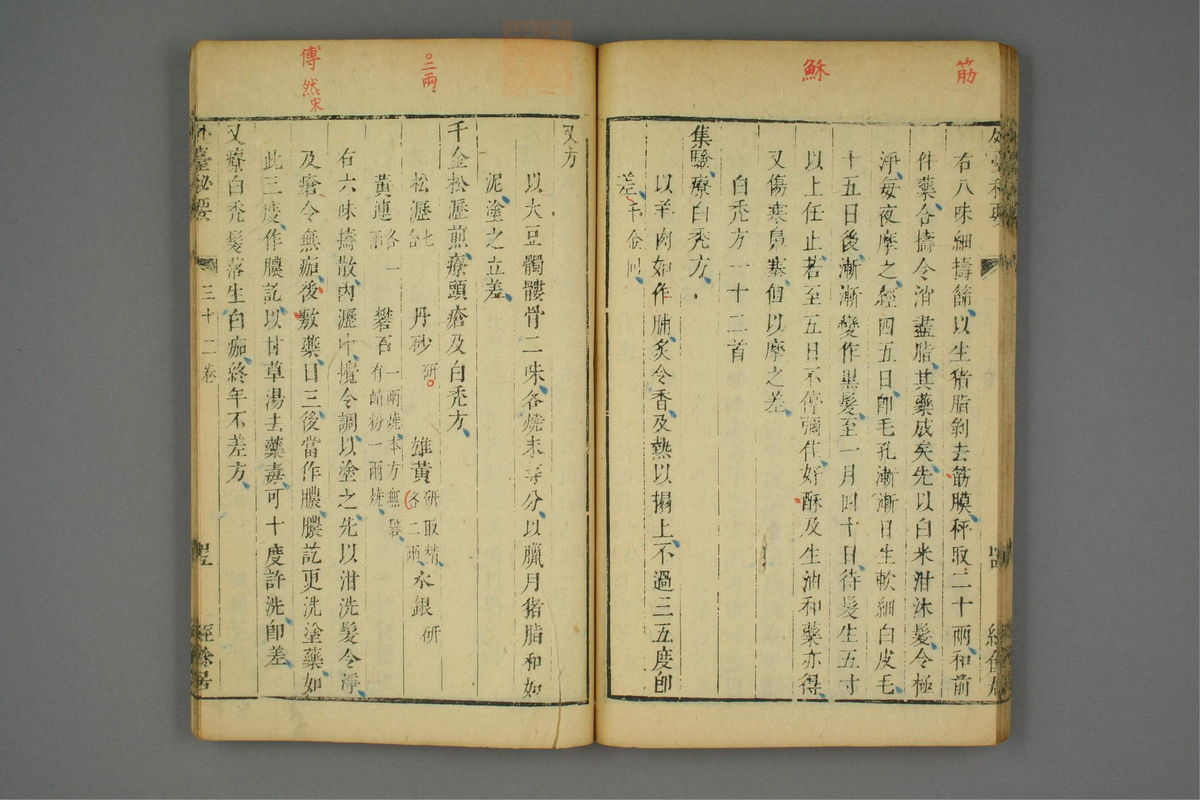 筋
穌
右八味細擣篩以生猪脂剝去筋膜秤取二十兩和前
件藥合擣令消盡脂其藥成矣先以白米泔沐髮令極
淨每夜摩之經四五日即毛孔漸漸日生軟細白皮毛
十五日後漸漸變作黑髮至一月四十日待髮生五寸
以上任止若至五日不停彌佳好酥及生油和藥亦得
又傷寒鼻塞但以摩之差
白禿方一十二首
集驗療白禿方
以羊肉如作脯炙令香及熱以搨上不過三五度即
差千金同
三兩
傅
然宋
又方
以大豆髑髏骨二味各燒末等分以臘月猪脂和如
泥塗之立差
千金松瀝煎療頭瘡及白禿方
松瀝七合 丹砂研 雄黃研取精各二兩 水銀研
黃連各一兩 礬石一兩燒本方無礬有峭粉一兩燒
右六味擣散內瀝中攪令調以塗之先以泔洗髮令淨
及瘡令無痂後敷藥日三後當作膿膿訖更洗塗藥如
此三度作膿訖以甘草湯去藥毒可十度許洗即差
又療白禿髮落生白痂終年不差方
外臺秘要 三十二卷 經餘居